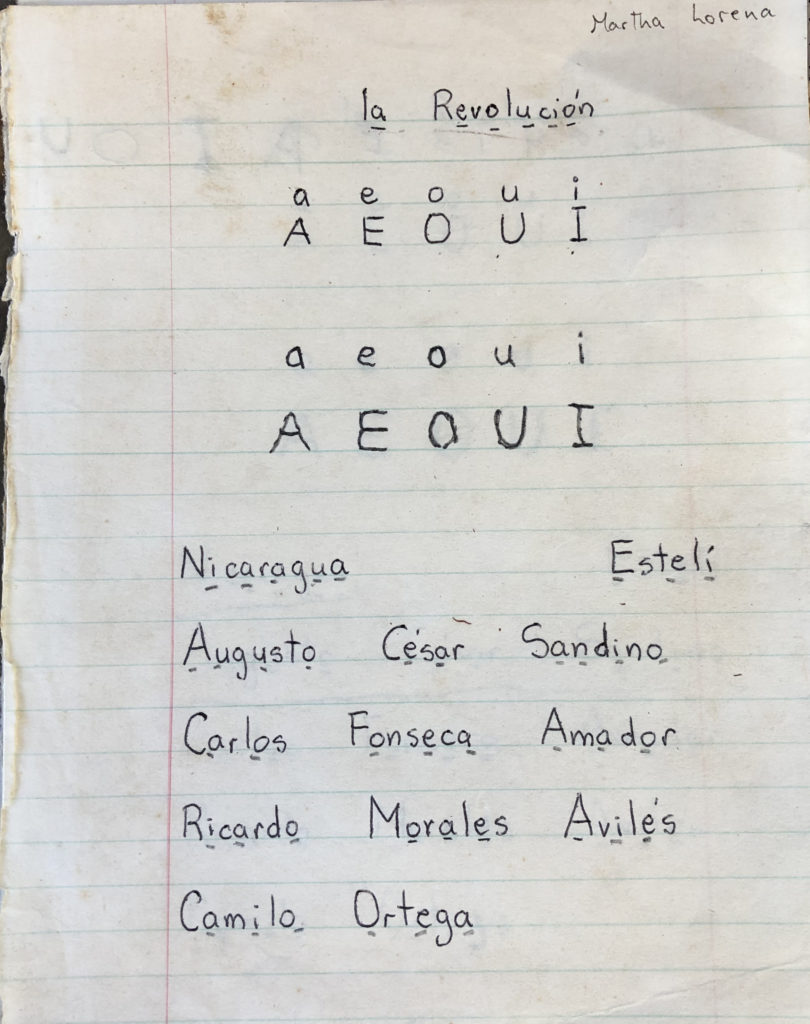 Martha Lorena
la Revolución
a e o u i
A E O U I
a e o u i
A E O U I
Nicaragua Estelí
Augusto César Sandino
Carlos Fonseca Amador
Ricardo Morales Avilés
Camilo Ortega